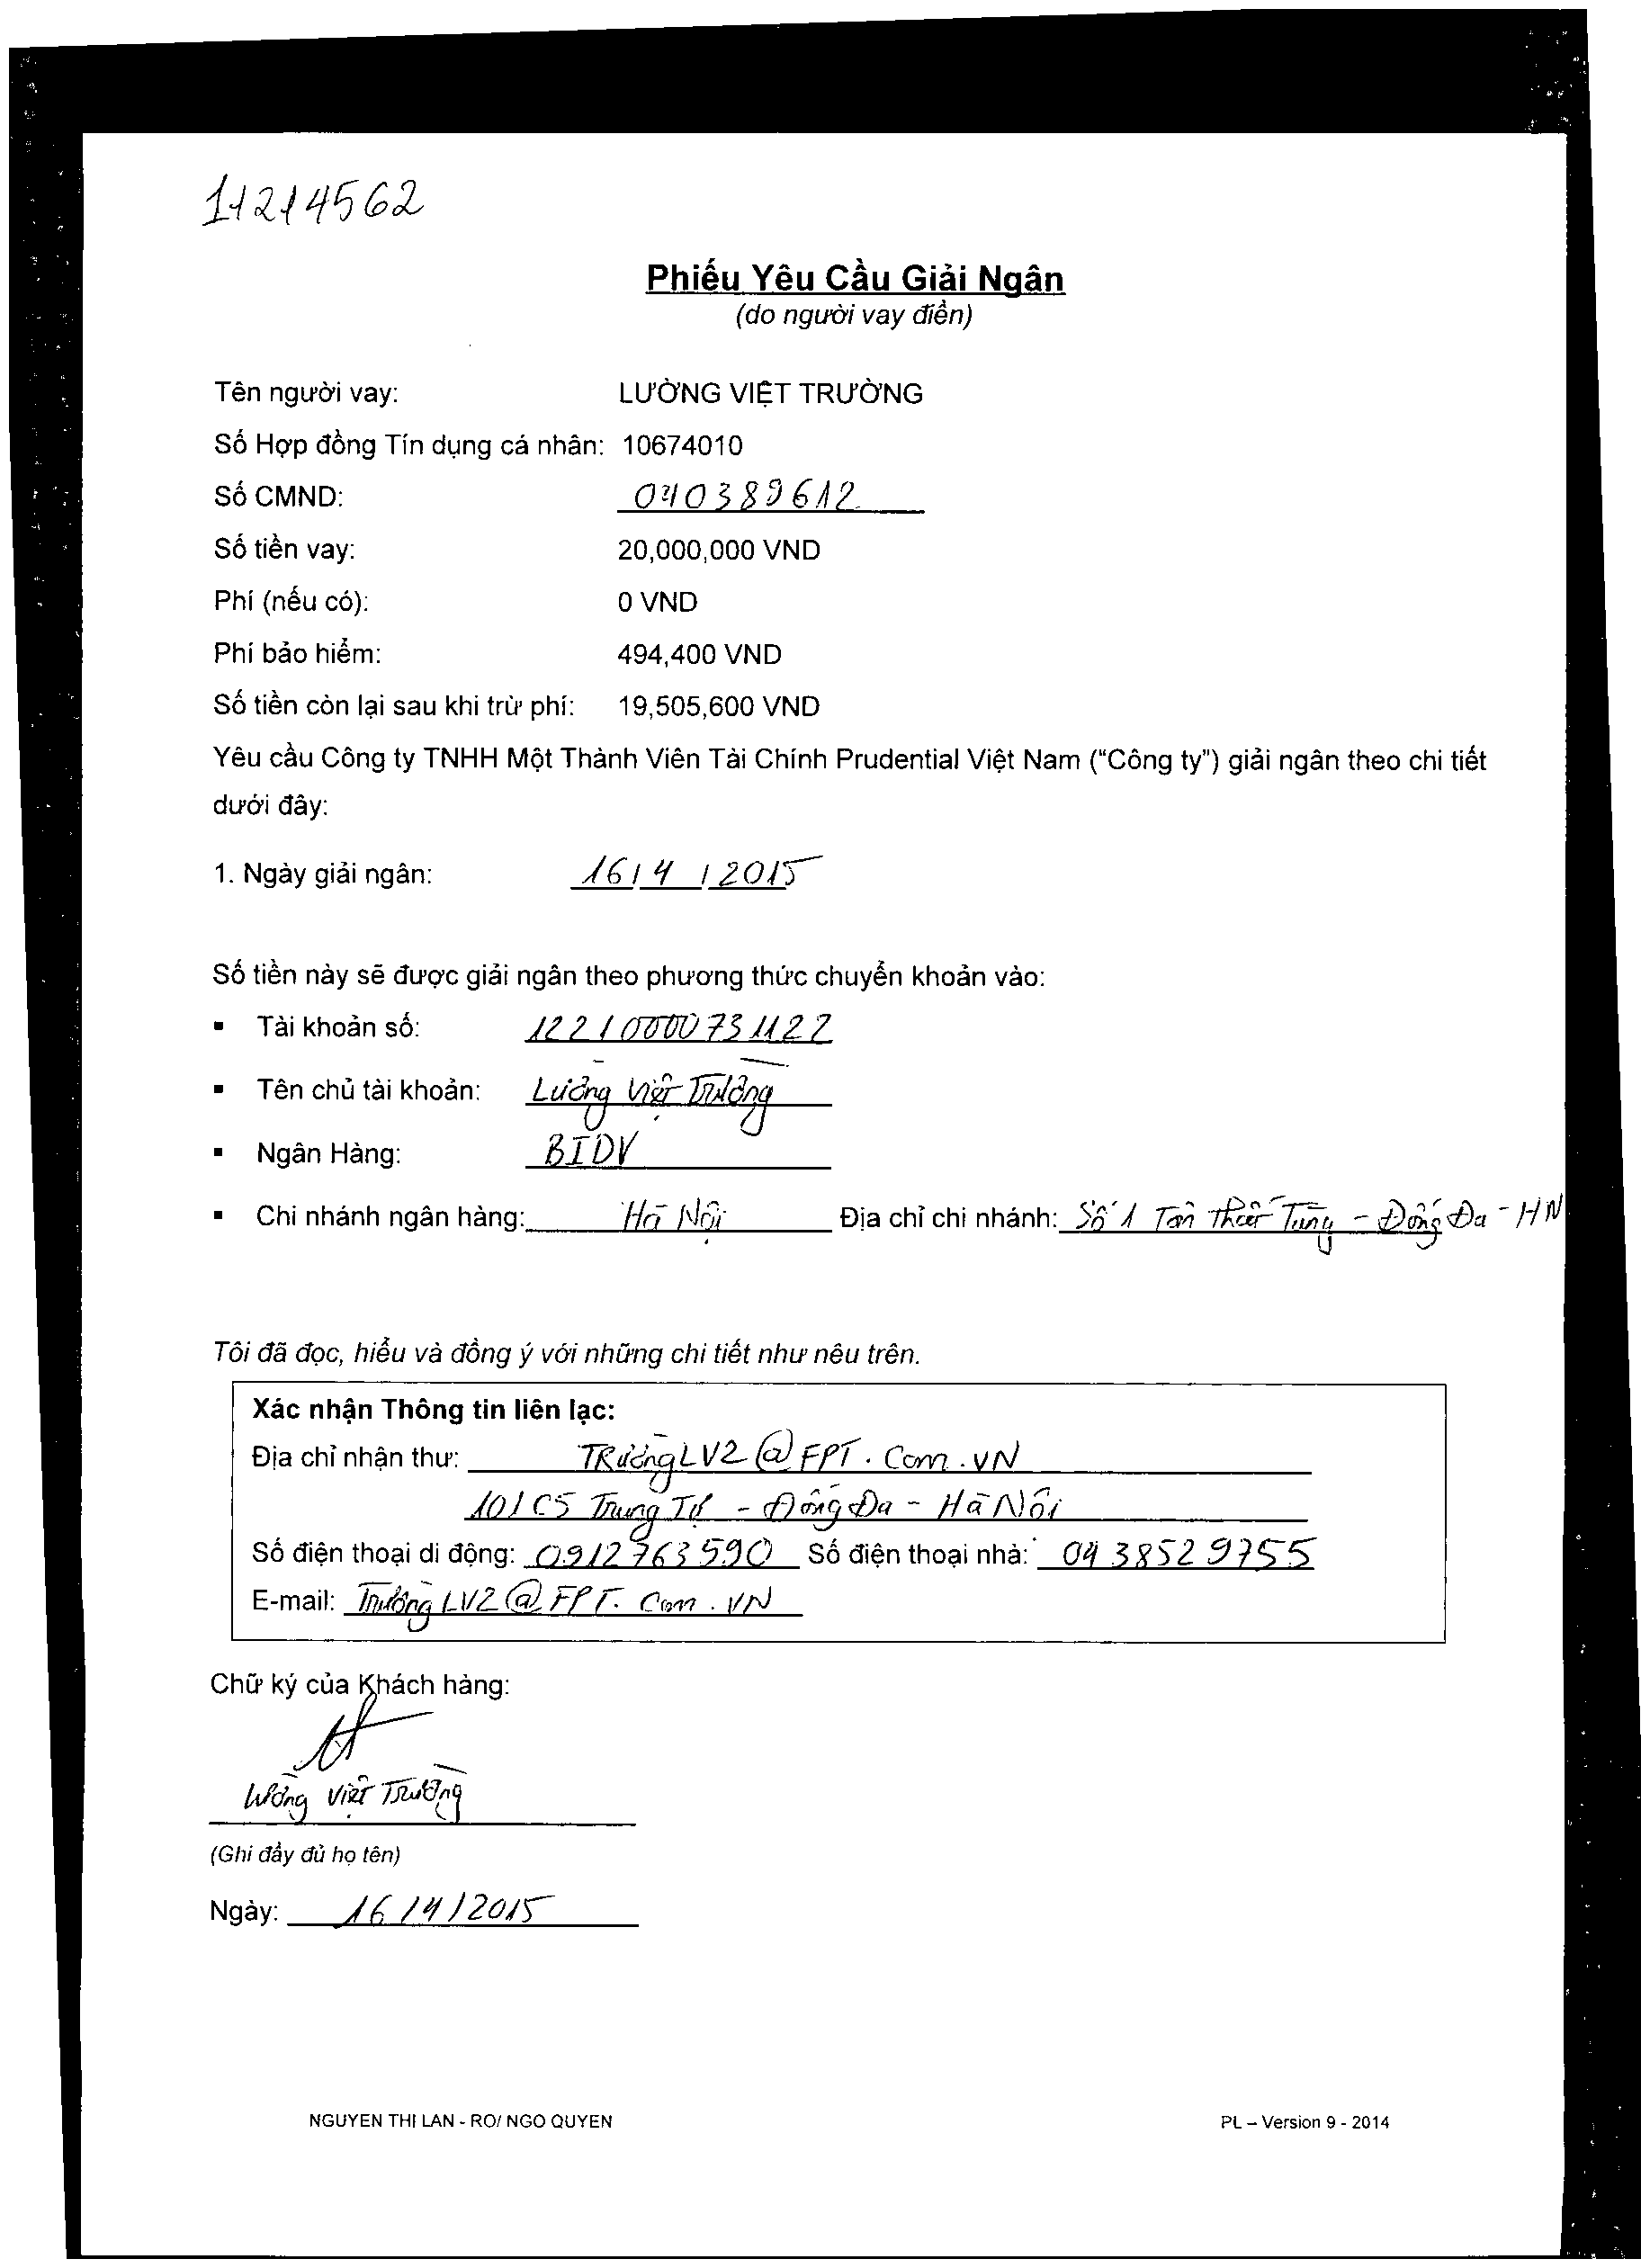 11214562
Phiếu Yêu Cầu Giải Ngân
(do người vay điền)
Tên người vay: LƯỜNG VIỆT TRƯỜNG
Số Hợp đồng Tín dụng cá nhân: 10674010
Số CMND: 040389612
Số tiền vay: 20,000,000 VND
Phí (nếu có): 0 VND
Phí bảo hiểm: 494,400 VND
Số tiền còn lại sau khi trừ phí: 19,505,600 VND
Yêu cầu Công ty TNHH Một Thành Viên Tài Chính Prudential Việt Nam (“Công ty”) giải ngân theo chi tiết
dưới đây:
1. Ngày giải ngân: 16/4/2015
Số tiền này sẽ được giải ngân theo phương thức chuyển khoản vào:
▪ Tài khoản số: 12210000731122
▪ Tên chủ tài khoản: Lường Việt Trường
▪ Ngân Hàng: BIDV
▪ Chi nhánh ngân hàng: Hà Nội Địa chỉ chi nhánh: Số 1 Tôn Thất Tùng - Đống Đa - HN
Tôi đã đọc, hiểu và đồng ý với những chi tiết như nêu trên.
Xác nhận Thông tin liên lạc:
Địa chỉ nhận thư: TRườngLV2@FPT.Com.VN
101 C5 Trung Tự - Đống Đa - Hà Nội
Số điện thoại di động: 0912763590 Số điện thoại nhà: 04 38529755
E-mail: TrườngLV2@FPT.Com.VN
Chữ ký của Khách hàng:
Lường Việt Trường
(Ghi đầy đủ họ tên)
Ngày: 16/4/2015
NGUYEN THI LAN - RO/ NGO QUYEN PL – Version 9 - 2014